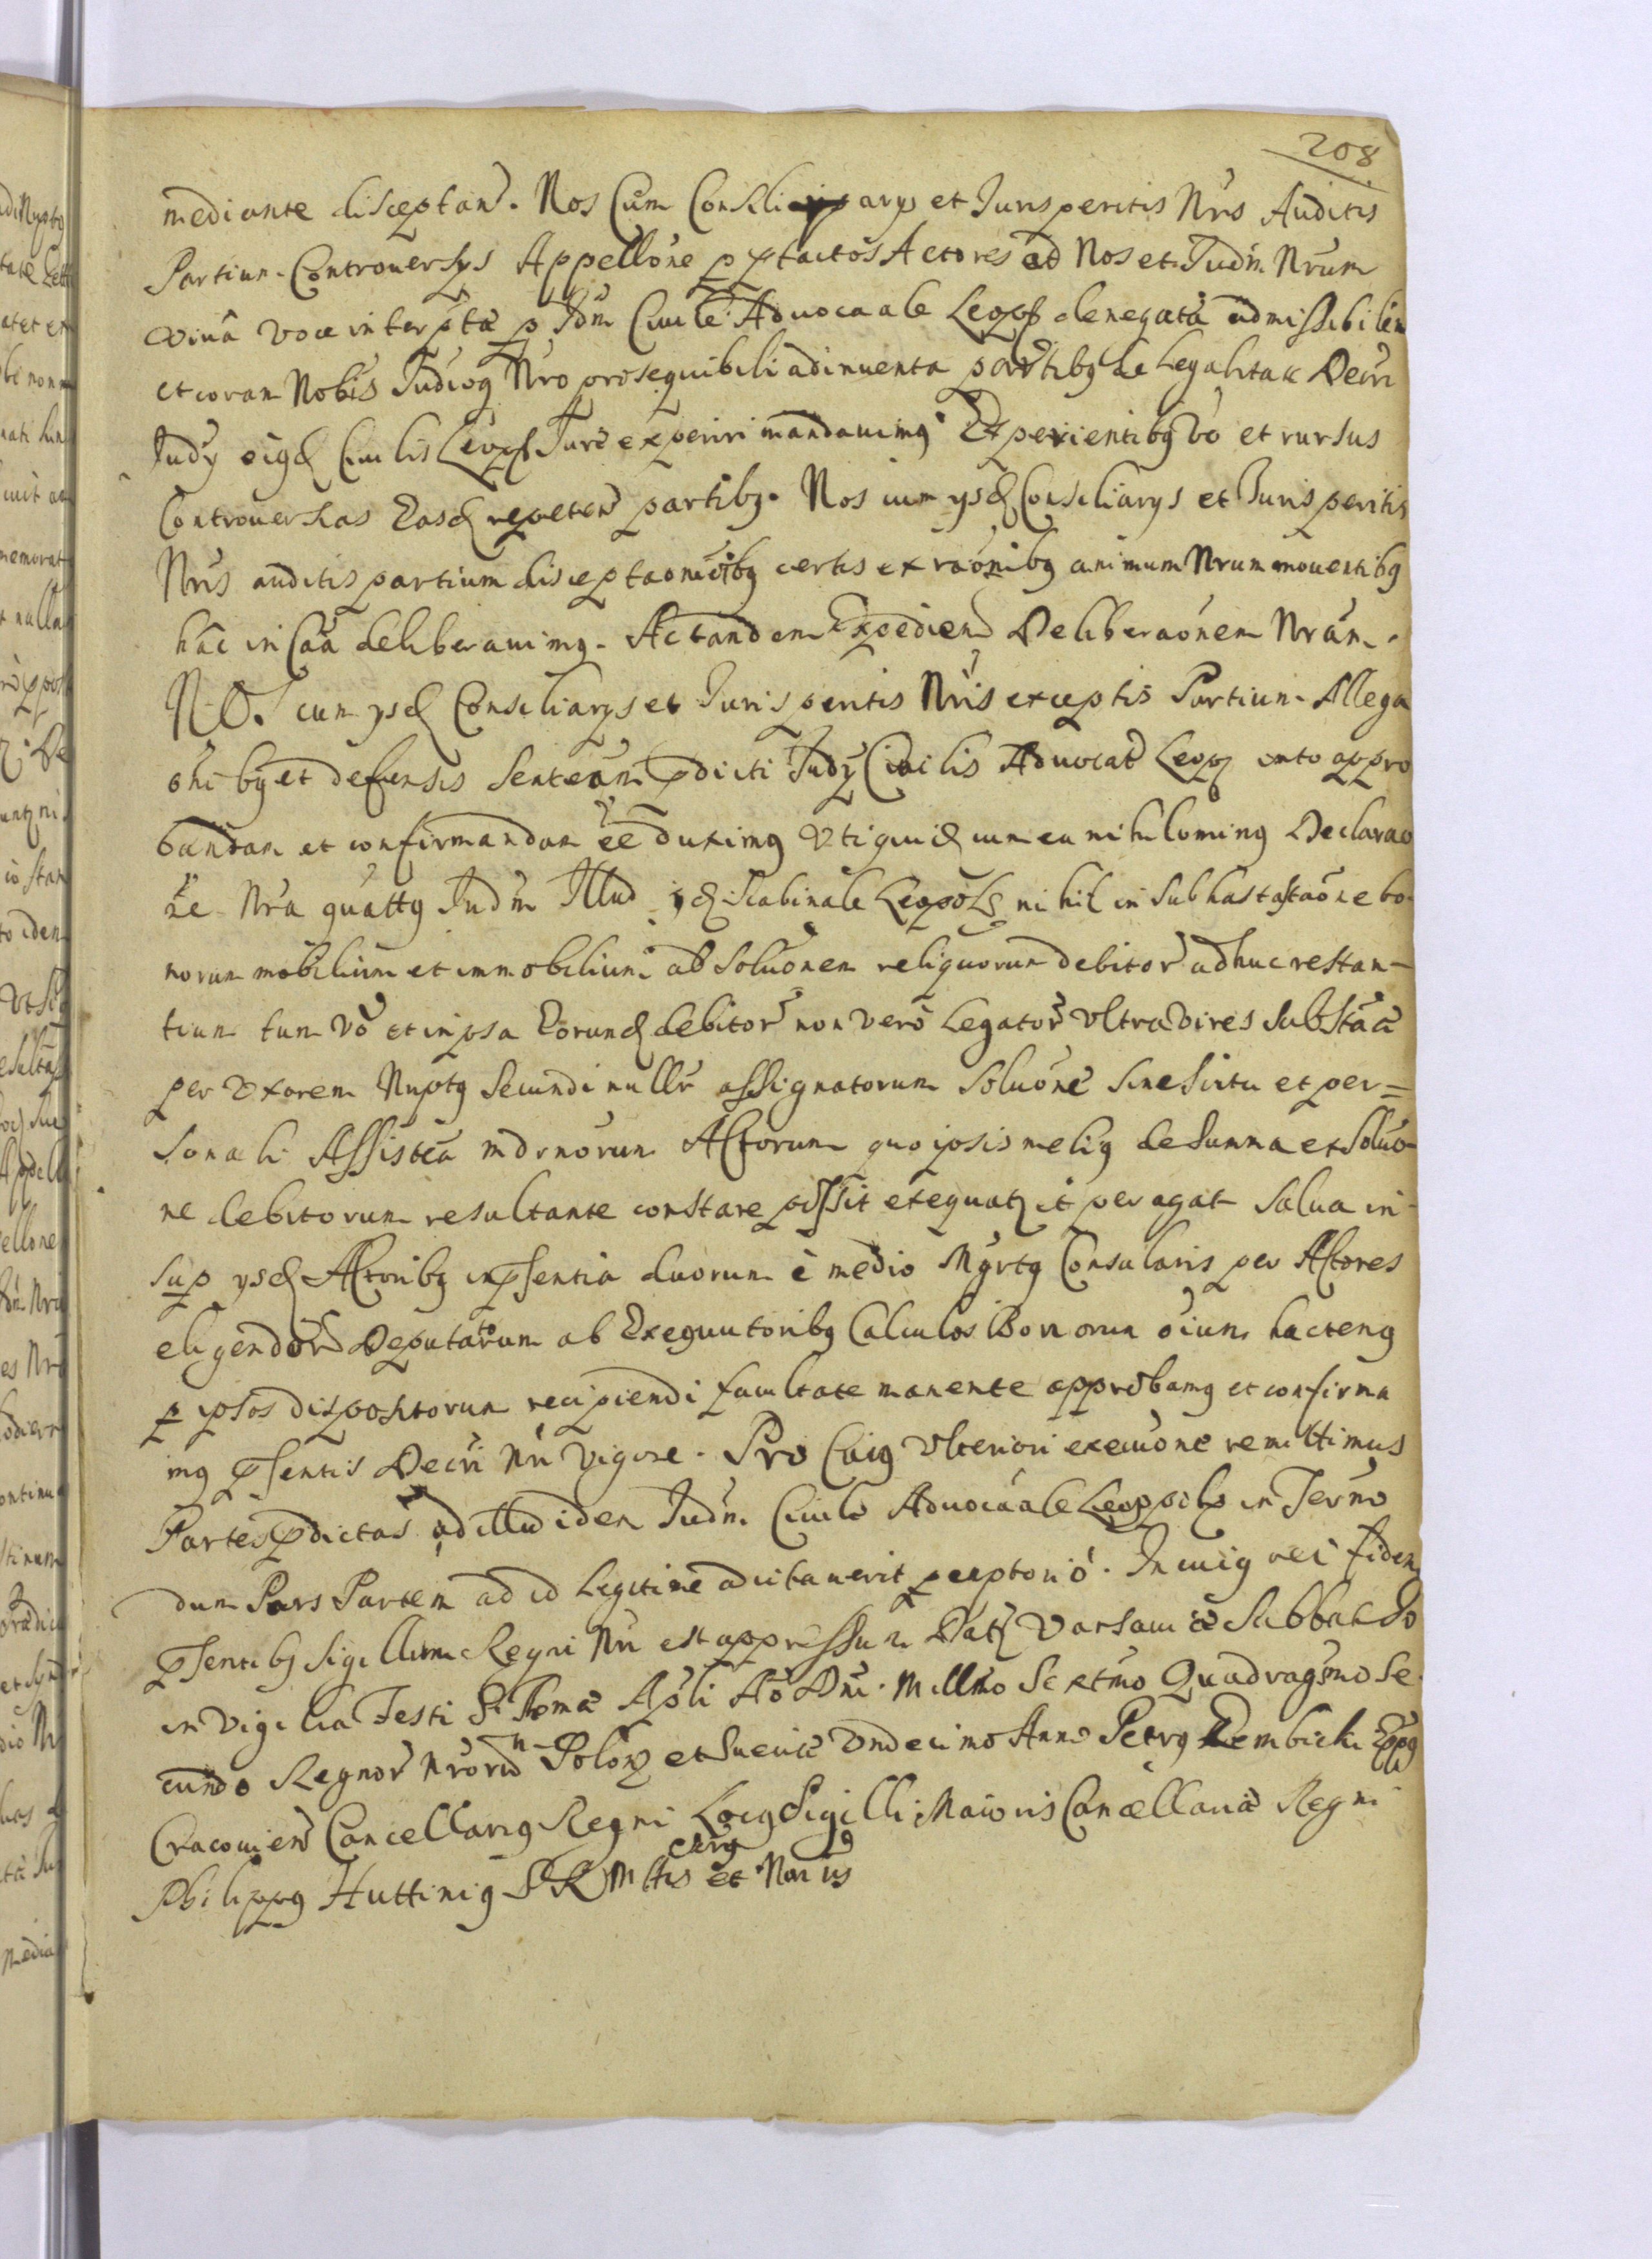 208
mediante disceptan̄. Nos Cum Consiliarys et Jurisperitis Nr̄is Auditis
Partium Controuersys Appellōne p̱ p̱tactos Actores ad Nos et Judm̄ Nr̄um
viuâ voce interp̄tæ p̱ Jdm̄ Ciuile Aduoca͞ale Leop̱ denegatâ admissibilem
et coram Nobis Judioq̢ Nr̄o prosequibili adinuenta partibq̢ de Legalitate Decr̄i
Judy eiq̢d Ciuilis Leop̱ Jure experiri mandauimq̢ Experientibq̢ vō et rursus
Controuersias Easd̢ repeten̄ partibq̢. Nos cum ysd̢ Consiliarys et Juris peritis
Nr̄is auditis partium discepta͞onibq̢ certis ex ra͞onibq̢ animum Nrum mouentibq̢
hāc in Cāa deliberauimq̢. Ac tandem Expedien̄ Delibera͞onem Nr̄am.
NOS cum ysd̢ Consiliarys et Juris peritis Nr̄is exceptis Partium Allega
o͞nibq̢ et defensis Sente͞am p̱dicti Judy Ciuilis Aduocat̄ Leop̱ appro
bandam et confirmandam ē͞e duximq̢ Vti quid̢ cum ea nihilominq̢ Declara͞o
ne Nr̄a quattq̢ Judm̄ Illud Scabinale Leopol̄ nihil in Subhastata͞one bo-
norum mobilium et immobilium ab Solu͞onem reliquorum debitor̄ adhuc restan-
tium tum vō et in ipsa Eorund̢ debitor̄ non verò Legator̄ Vltra vires Subst͞aæ
per Vxorem Nuptq̢ Secundi assignatorum Solu͞one sine Scitu et per=
sonali Assiste͞a Actorum quo ipsis meliq̢ de Summa et Solu͞o
ne debitorum resultante constare possit exequat̢ et peragat Salua in-
sup̱ ysd̢ Actoribq̢ in p̱sentia duorum è medio Mgr̄tq̢ Consularis per Actores
eligendor̄ Deputatorum ab Exequutoribq̢ Calculos Bonorum o͞ium hactenq̢
p̱ ipsos dispositorum recipiendi facultate manente approbamq̢ et confirma
mq̢ p̱sentis Decr̄i Nr̄i vigore. Pro Cuiq̢ Vlteriori execu͞one remittimus
Partes p̱dictas ad illud idem Judm̄ Ciuile Aduoca͞ale Leop̱ in Term̄o
dum Pars Partem ad id Legitime adcitauerit p̱emptorió. In cuiq̢ rei fidem
p̱sentibq̢ Sigillum Regni Nr̄i est appressum Dat̢ Varsauiæ Sabbatho
in Vigilia Festi S. Thomæ Ap̄li A͞o Dn̄i. Millmo Sextmo Quadragsmo Se-
cundo Regnor̄ Nr̄orum Polon̄ et Sueciæ Vndecimo Anno Petrq̢ Gembicki Epp̄q̢
Cracouien̄ Cancellariq̢ Regni Locq̢ Sigilli Maioris Cancellariæ Regni
Philippq̢ Huttiniq̢ S R Mttis et Nor̄ius